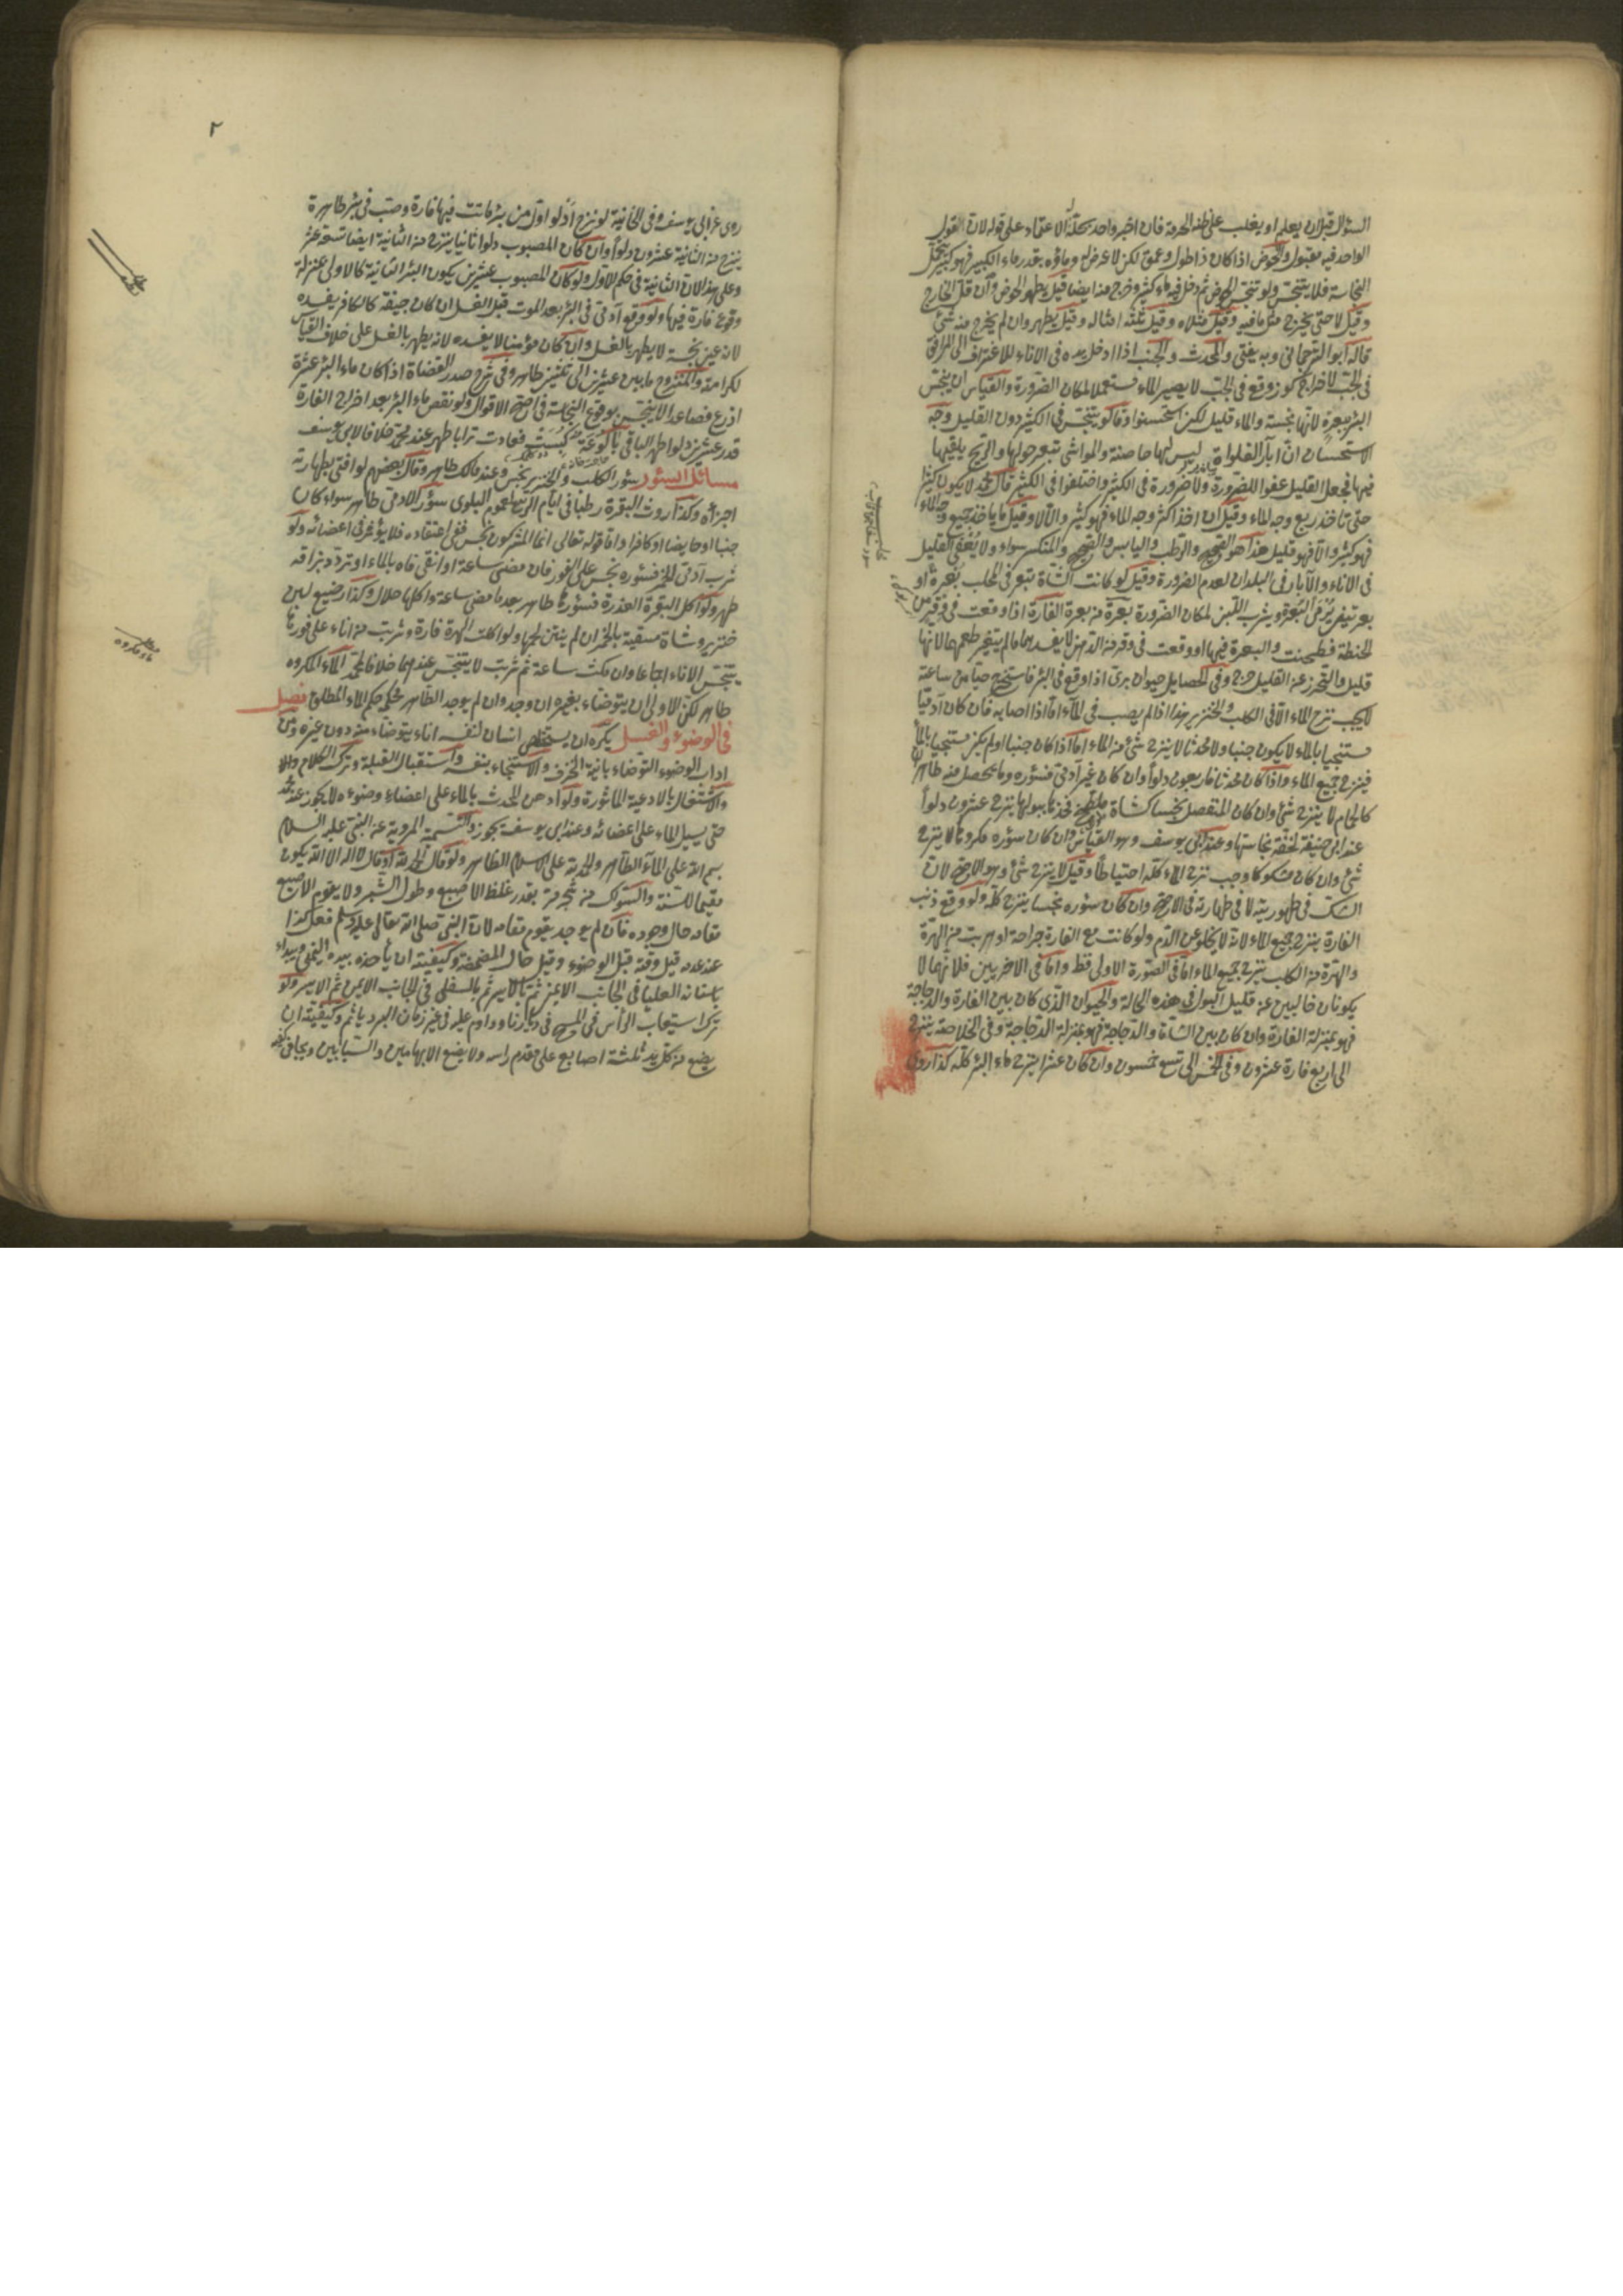 السؤال قبل ان يعلم او يغلب على ظنه الحرمة فان اخبر واحد بحلّه الاعتماد على قوله لان القول
الواحد فيه مقبول والحوض اذا كان ذا طول وعمق لكن لا عرض له وماؤه بقدر ماء الكبير فهو كبير
النجاسة فلا يتنجس ولو تنجس الحوض ثم دخل فيه ماء كثير وخرج منه ايضا قيل يطهر الحوض وان قل الخارج
وقيل لا حتى يخرج مثل ما فيه وقيل مثلاه وقيل ثلثة امثاله وقيل يطهر وان لم يخرج منه شئ
قاله ابو الترجمانى وبه يفتى والمحدث والجنب اذا ادخل يده فى الاناء للاغتراف الى المرافق
فى الجب لاخراج كوز وقع فى الجب لا يصير الماء مستعملا لمكان الضرورة والقياس ان ينجس
البئر ببعرة لانها نجسة والماء قليل لكن استحسنوا وقالوا يتنجس فى الكثير دون القليل وجه
الاستحسان ان آبار الفلوات ليس لها حاصنة والمواشى تبعر حولها والريح يلقيها
فيها فجعل القليل عفوا للضرورة ولا ضرورة فى الكثير واختلفوا فى الكثير قال محمد لا يكون كثيرا
حتى تأخذ ربع وجه الماء وقيل ان اخذ اكثر وجه الماء فهو كثير والا لا وقيل ما يأخذ جميع وجه الماء
فهو كثير والا فهو قليل هذا هو الصحيح والرطب واليابس والصحيح والمنكسر سواء ولا يعفى القليل
فى الاناء والآبار فى البلدان لعدم الضرورة وقيل لو كانت الشاة تبعر فى المحلب بعرة او
بعرتين يرمى البعر ويشرب اللبن لمكان الضرورة بعرة من بعرة الفارة اذا وقعت فى وقر من
الحنطة فطحنت والبعرة فيها او وقعت فى وقر من الدهن لا يفسدهما ما لم يتغير طعمهما لانها
قليل والتحرز عن القليل حرج وفى الحصايل حيوان برى اذا وقع فى البئر فاستخرج حيا من ساعته
لا يجب نزح الماء الا فى الكلب والخنزير هذا اذا لم يصب فى الماء اما اذا اصابه فان كان آدميا
مستنجيا بالماء لا يكون جنبا ولا محدثا لا ينزح شئ من الماء اما اذا كان جنبا او لم يكن مستنجيا بالماء
فينزح جميع الماء واذا كان محدثا فاربعون دلوا وان كان غير آدمى فسؤره وما يحصل منه طاهر
كالحمام لا ينزح شئ وان كان المنفصل نجسا كشاة فخذها ببولها ينزح عشرون دلوا
عند ابى حنيفة لخفة نجاستها وعند ابى يوسف وهو القياس وان كان سؤره مكروها لا ينزح
شئ وان كان مشكوكا وجب نزح الماء كله احتياطا وقيل لا ينزح شئ وهو الاصح لان
الشك فى طهوريته لا فى طهارته فى الاصح وان كان سؤره نجسا ينزح كله ولو وقع ذنب
الفارة ينزح جميع الماء لانه لا يخلو عن الدم ولو كانت مع الفارة جراحة او هربت من الهرة
والهرة من الكلب ينزح جميع الماء اما فى الصورة الاولى فقط واما فى الاخريين فلانهما لا
يكونان خاليين عن قليل البول فى هذه الحالة والحيوان الذى كان بين الفارة والدجاجة
فهو بمنزلة الفارة وان كان بين الشاة والدجاجة فهو بمنزلة الدجاجة وفى الخلاصة ينزح
الى اربع فارة عشرون وفى الخمس الى تسع خمسون وان كان عشرا ينزح ماء البئر كله كذا روى
٢
روى عن ابى يوسف وفى الخانية لو نزح دلو اول من بئر ماتت فيها فارة وصب فى بئر طاهرة
ينزح من الثانية عشرون دلوا وان كان المصبوب دلوا ثانيا ينزح من الثانية ايضا تسعة عشر
وعلى هذا لان الثانية فى حكم الاول ولو كان المصبوب عشرين يكون البئر الثانية كالاولى بمنزلة
وقوع فارة فيها ولو وقع آدمى فى البئر بعد الموت قبل الغسل ان كان جيفة كالكافر يفسده
لانه عين نجسة لا يطهر بالغسل وان كان مؤمنا لا يفسده لانه يطهر بالغسل على خلاف القياس
لكرامته والمنزوح ما بين عشرين الى ثلثين طاهر وفى شرح صدر القضاة اذا كان ماء البئر عشرة
اذرع فصاعدا لا يتنجس بوقوع النجاسة فى اصح الاقوال ولو نقص ماء البئر بعد اخراج الفارة
قدر عشرين دلوا طهر الباقى بالوعة كبست فعادت ترابا طهر عند محمد خلافا لابى يوسف
مسائل السؤر سؤر الكلب والخنزير نجس وعند مالك طاهر وقال بعضهم لو افتى بطهارته
اجزأه وكذا روث البقرة رطبا فى ايام الربيع لعموم البلوى سؤر الآدمى طاهر سواء كان
جنبا او حايضا او كافرا واما قوله تعالى انما المشركون نجس ففى اعتقاده فلا يؤثر فى اعضائه ولو
شرب آدمى الخمر فسؤره نجس على الفور فان مضى ساعة او انقى فاه بالماء او تردد بزاقه
طهر ولو اكل البقرة العذرة فسؤرها طاهر بعد ما مضى ساعة واكلها حلال وكذا رضيع لبن
خنزير وشاة مسقية بالخمر ان لم ينتن لحمها ولو اكلت الهرة فارة وشربت من اناء على فورها
يتنجس الاناء اجماعا وان مكثت ساعة ثم شربت لا يتنجس عندهما خلافا لمحمد الماء المكروه
طاهر لكن الاولى ان يتوضاء بغيره ان وجد وان لم يوجد الطاهر فحكمه حكم الماء المطلق فصل
فى الوضوء والغسل يكره ان يستخلص انسان لنفسه اناء يتوضاء منه دون غيره ومن
اداب الوضوء التوضاء بانية الخزف والاستنجاء بنفسه واستقبال القبلة وترك الكلام
والاشتغال بالادعية الماثورة ولو ادهن المحدث بالماء على اعضاء وضوءه لا يجوز عند محمد
حتى يسيل الماء على اعضائه وعند ابى يوسف يجوز والتسمية المروية عن النبى عليه السلام
بسم الله على الماء الطاهر والحمد لله على الاسلام الطاهر ولو قال الحمد لله او قال لا اله الا الله يكون
مقيما للسنة والسواك من شجر مرة بقدر غلظ الاصبع وطول الشبر ولا يقوم الاصبع
مقامه حال وجوده فان لم يوجد يقوم مقامه لان النبى صلى الله تعالى عليه وسلم فعل كذا
عند عدمه قيل وقته قبل الوضوء وقيل حال المضمضة وكيفيته ان يأخذه بيده اليمنى ويبداء
باسنانه العليا فى الجانب الايمن ثم بالايسر ثم بالسفلى فى الجانب الايمن ثم الايسر ولو
ترك استيعاب الرأس فى المسح فى ديارنا وداوم عليه فى غير زمان البرد يأثم وكيفيته ان
يضع من كل يد ثلثة اصابع على مقدم راسه ولا يضع الابهامين والسبابتين ويجافى كفيه
ماء مكروه